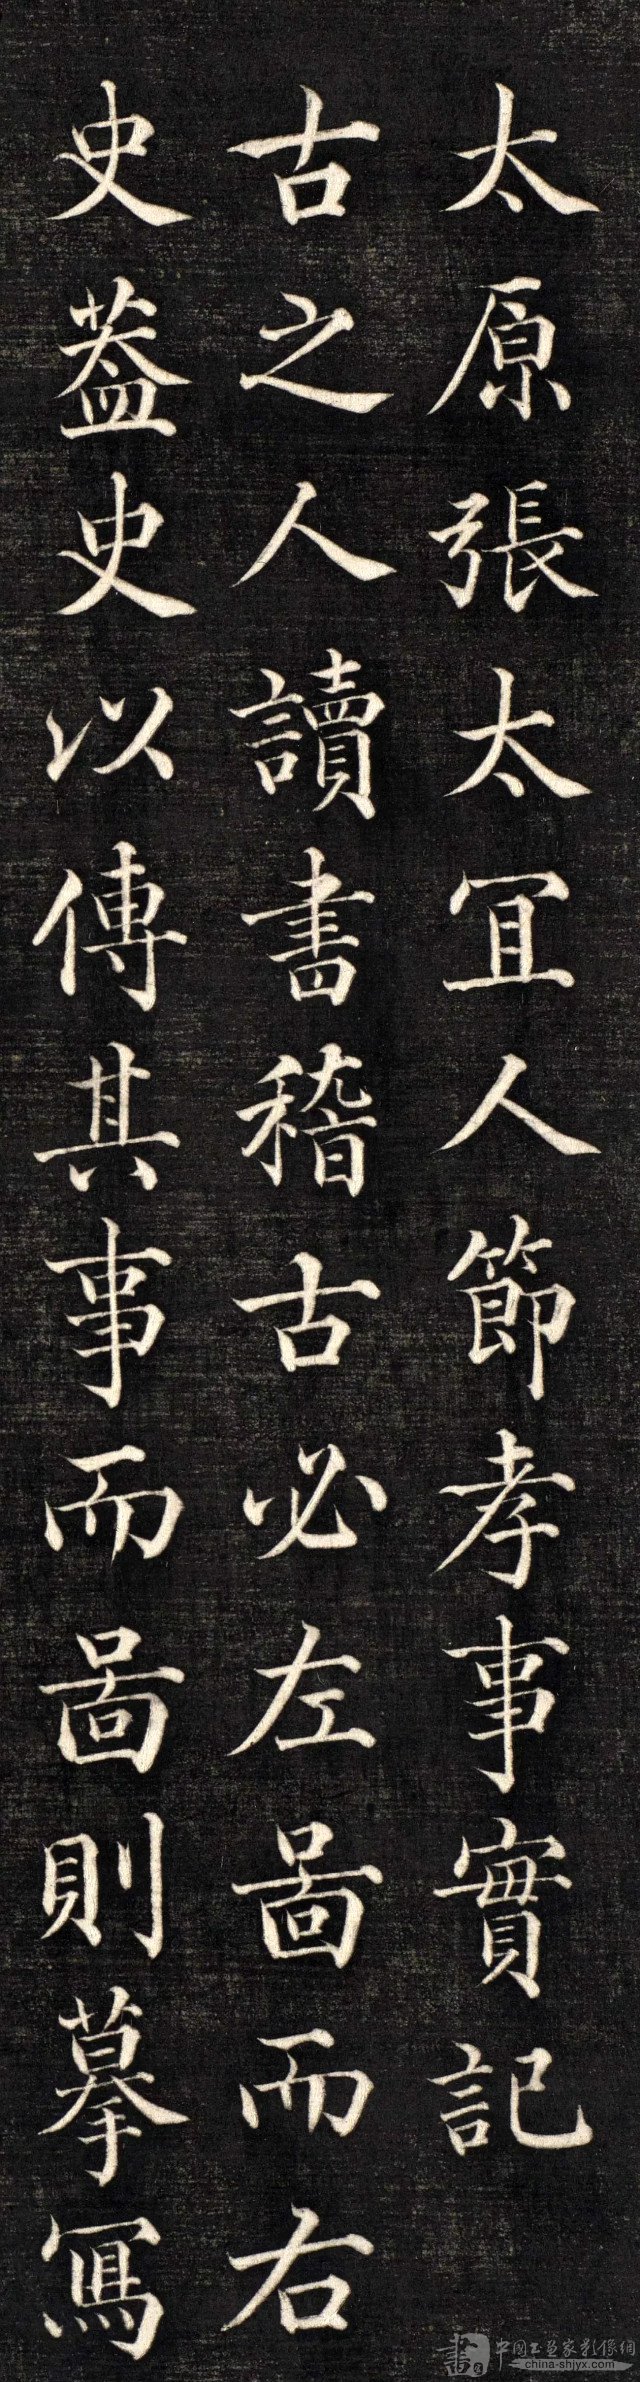 太原張太冝人節孝事實記
古之人讀書稽古必左啚而右
史葢史以傳其事而啚則摹寫
中國工筆畫家影像網
china-shjyx.com